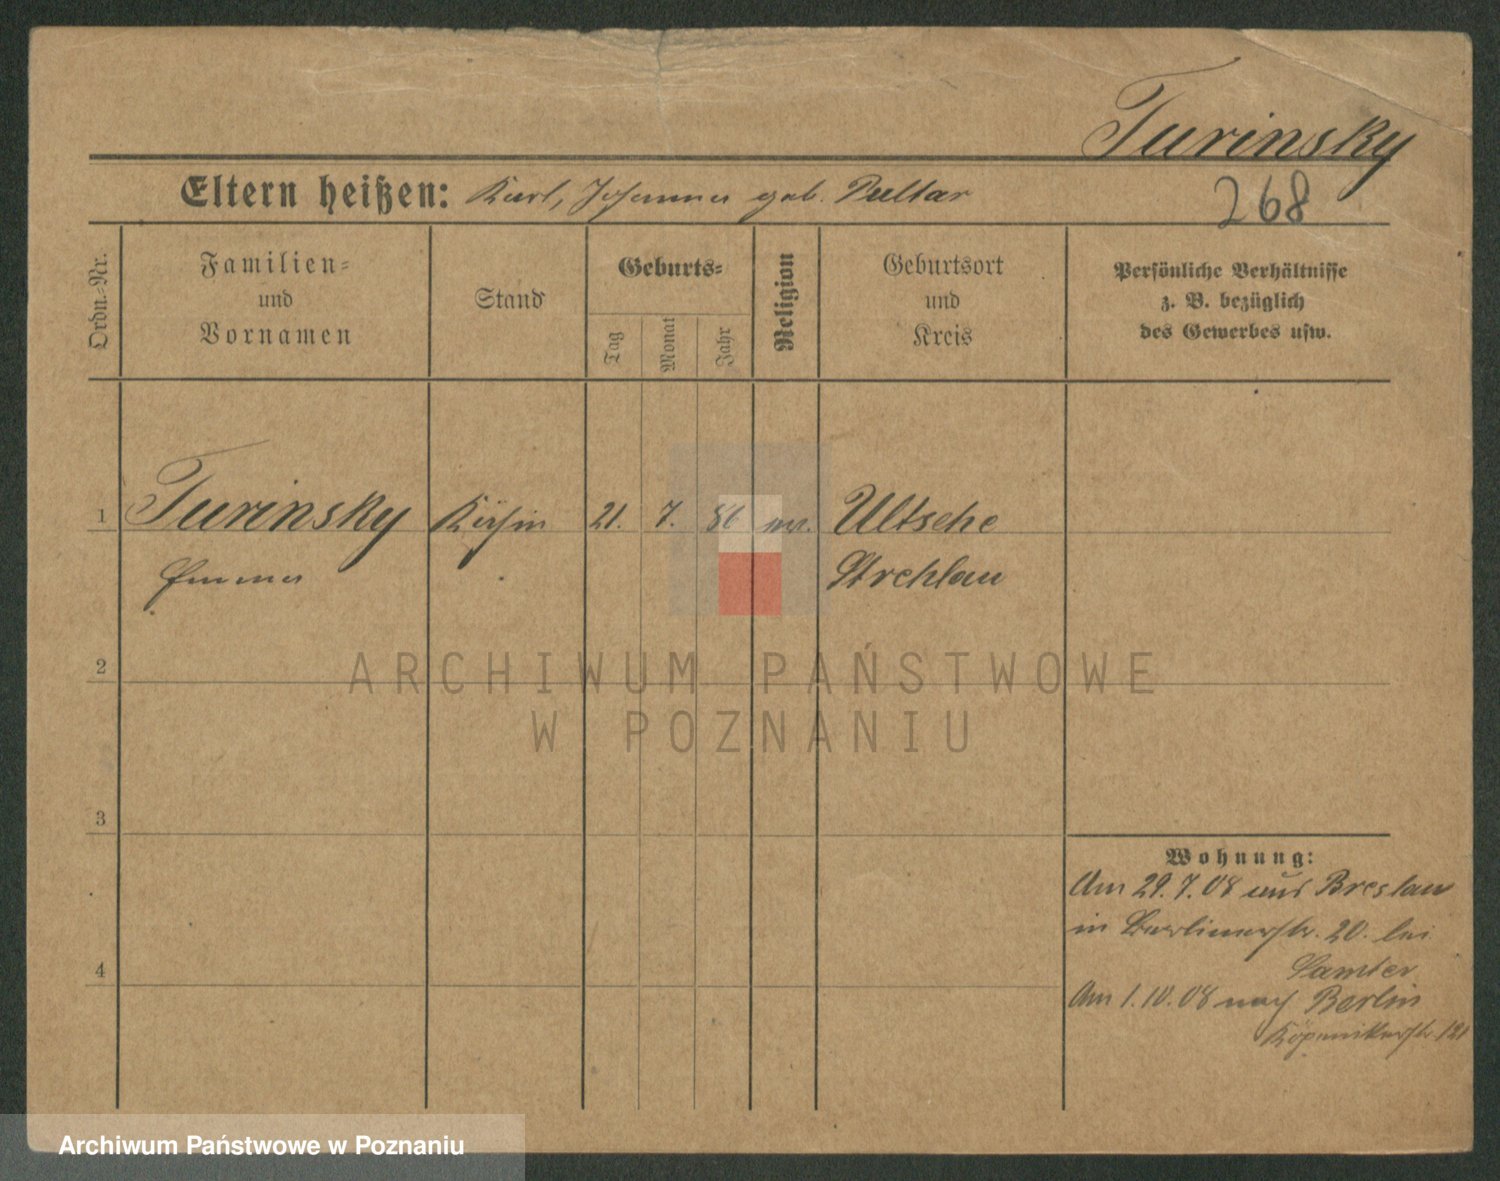 Turinsky
Eltern heißen: Karl, Johanna geb. Pultar
268
Ordn.-Nr.
Familien-
und
Vornamen
Stand
Geburts-
Tag
Monat
Jahr
Religion
Geburtsort
und
Kreis
Persönliche Verhältnisse
z. B. bezüglich
des Gewerbes usw.
1 Turinsky Köchin 21. 7. 86 ev. Ultsche
Emma Strehlau
ARCHIWUM PAŃSTWOWE
2
W POZNANIU
3
Wohnung:
Am 29.7.08 aus Breslau
in Berlinerstr. 20. bei
Samter
4
Am 1.10.08 nach Berlin
Köpenickerstr. 121
Archiwum Państwowe w Poznaniu